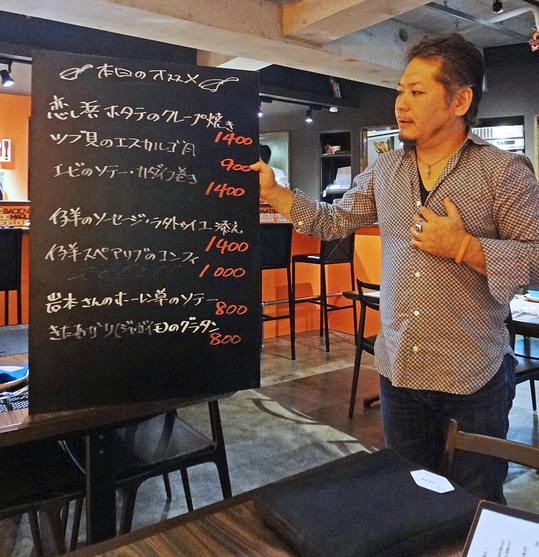 本日のオススメ
恋し浜ホタテのクレープ焼き
1400
ツブ貝のエスカルゴ風
900
エビのソテー・カダイフ巻き
1400
仔羊のソーセージ・ラタトゥイユ添え
1400
仔羊スペアリブのコンフィ
1000
岩本さんのホーレン草のソテー
800
きたあかり(ジャガイモ)のグラタン
800